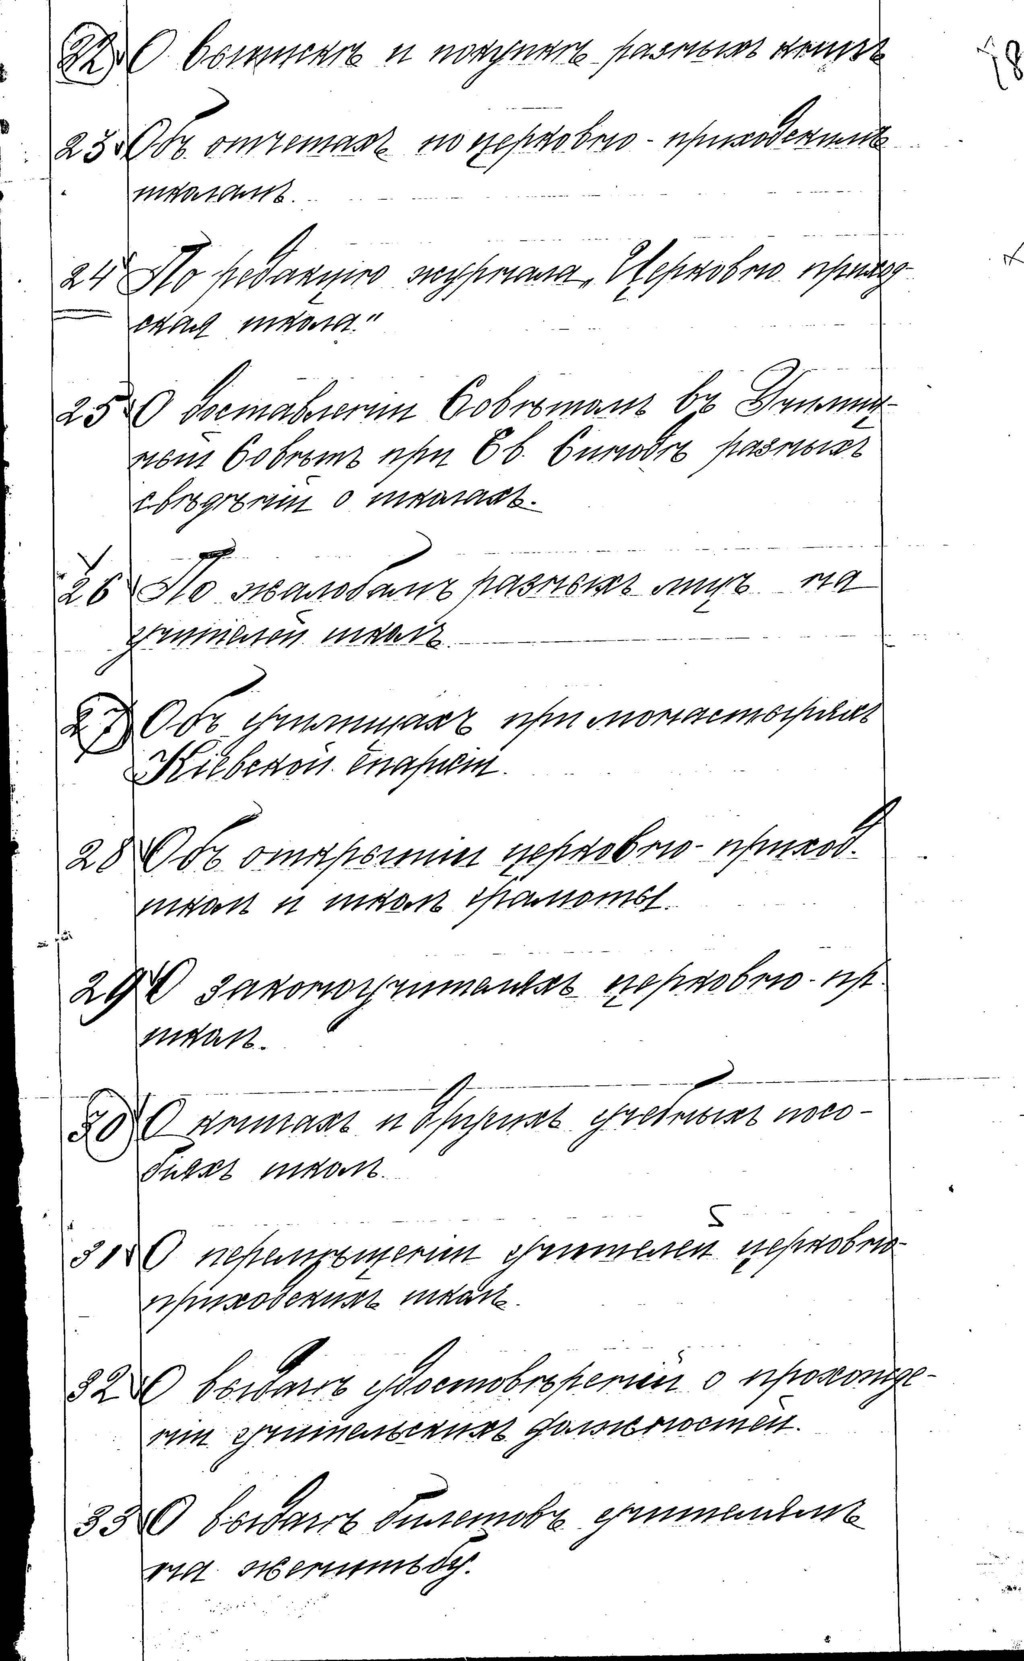 22 О выпискѣ и покупкѣ разныхъ книгъ
23 Объ отчетахъ по церковно-приходскимъ
школамъ.
24 По редакцію журнала „Церковно приход
ская школа"
25 О доставленіи Совѣтомъ въ Училищ-
ный Совѣтъ при Св. Синодѣ разныхъ
свѣдѣній о школахъ.
26 По жалобамъ разныхъ лицъ на
учителей школъ
27 Объ училищахъ при монастыряхъ
Кіевской Епархіи.
28 Объ открытіи церковно-приход.
школъ и школъ грамоты.
29 О законоучителяхъ церковно-пр.
школъ.
30 О книгахъ и другихъ учебныхъ посо-
біяхъ школ.
31 О перемѣщеніи учителей церковно-
приходскихъ школъ.
32 О выдачѣ удостовѣреній о прохожде-
ніи учительскихъ должностей.
33 О выдачѣ билетовъ учителямъ
на женитьбу.